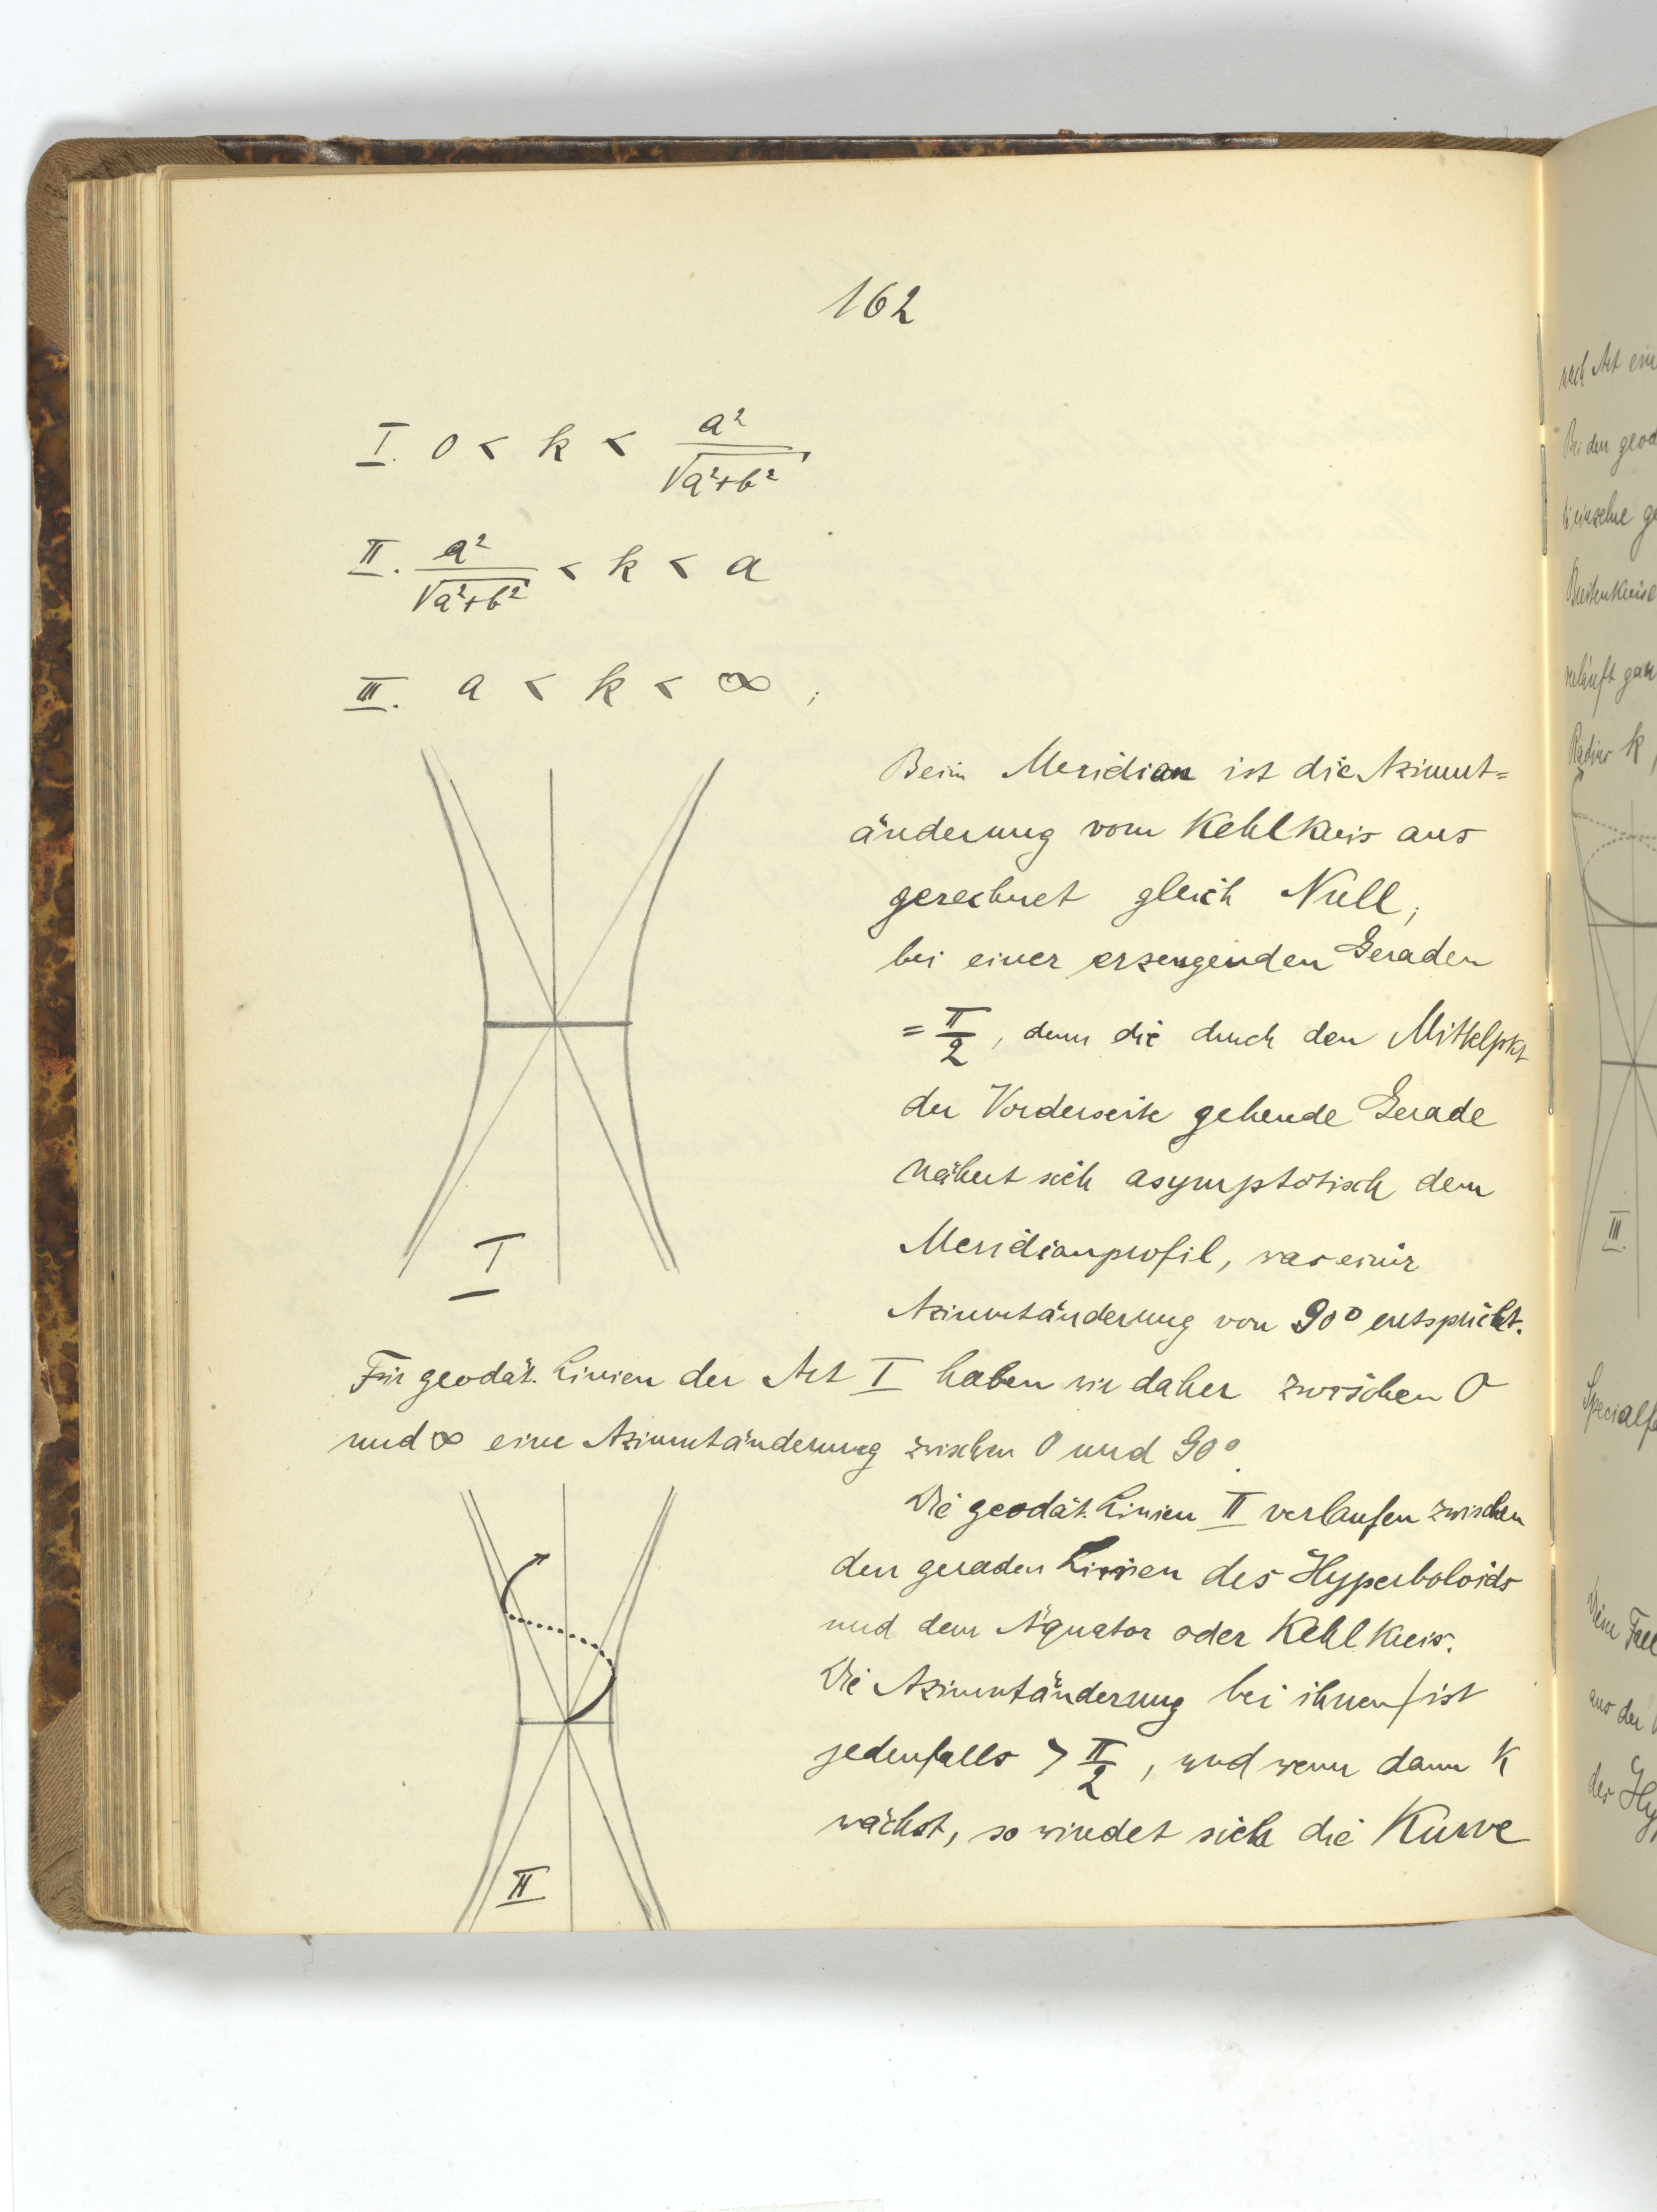 162
I. 0 < k < a²/√(a²+b²),
II. a²/√(a²+b²) < k < a
III. a < k < ∞ ;
Beim Meridian ist die Azimut=
änderung vom Kehlkreis aus
gerechnet gleich Null;
bei einer erzeugenden Geraden
= π/2, denn die durch den Mittelpkt
der Vorderseite gehende Gerade
nähert sich asymptotisch dem
Meridianprofil, was einer
Azimutänderung von 90° entspricht.
I
Für geodät. Linien der Art I haben wir daher zwischen 0
und ∞ eine Azimutänderung zwischen 0 und 90°.
Die geodät. Linien II verlaufen zwischen
den geraden Linien des Hyperboloids
und dem Äquator oder Kehlkreis.
Die Azimutänderung bei ihnen ist
jedenfalls > π/2, und wenn dann k
wächst, so windet sich die Kurve
II
nach Art
Bei den
einzelne
Breitenkreise
verläuft
Radius k,
III.
aus der